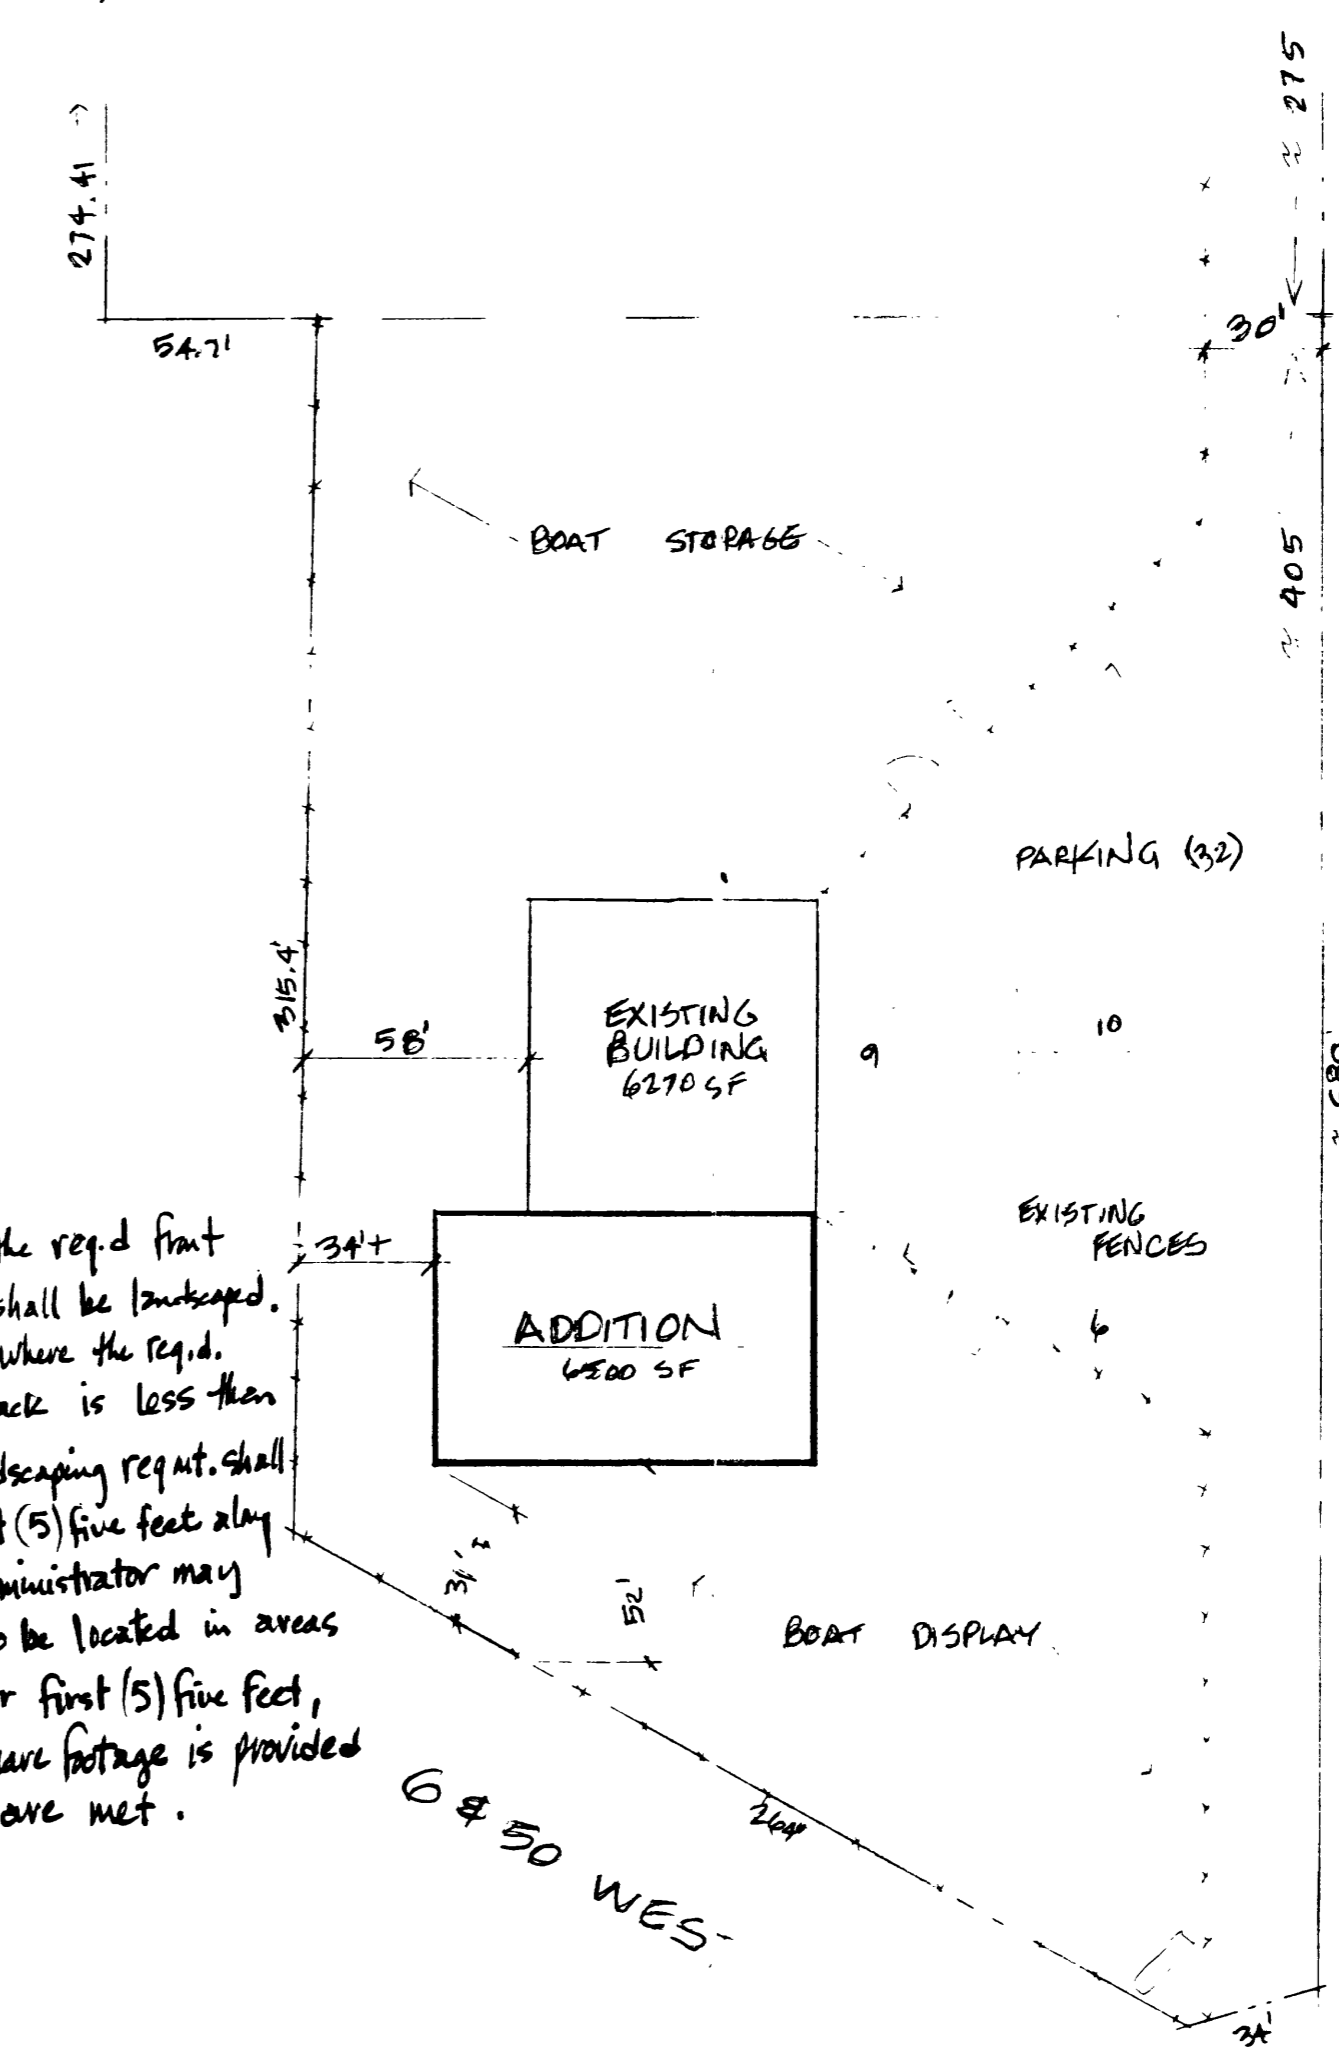 275
274.41
30'
54.7'
BOAT STORAGE
405
PARKING (32)
315.4'
EXISTING
BUILDING
6270 SF
58'
9
10
EXISTING
FENCES
34'±
ADDITION
SF
6
the req.d front
shall be landscaped.
where the req.d.
is less then
reqmt. shall
(5) five feet along
may
be located in areas
first (5) five feet,
footage is provided
are met.
31'±
52'
BOAT DISPLAY
264'
6 & 50 WES
34'